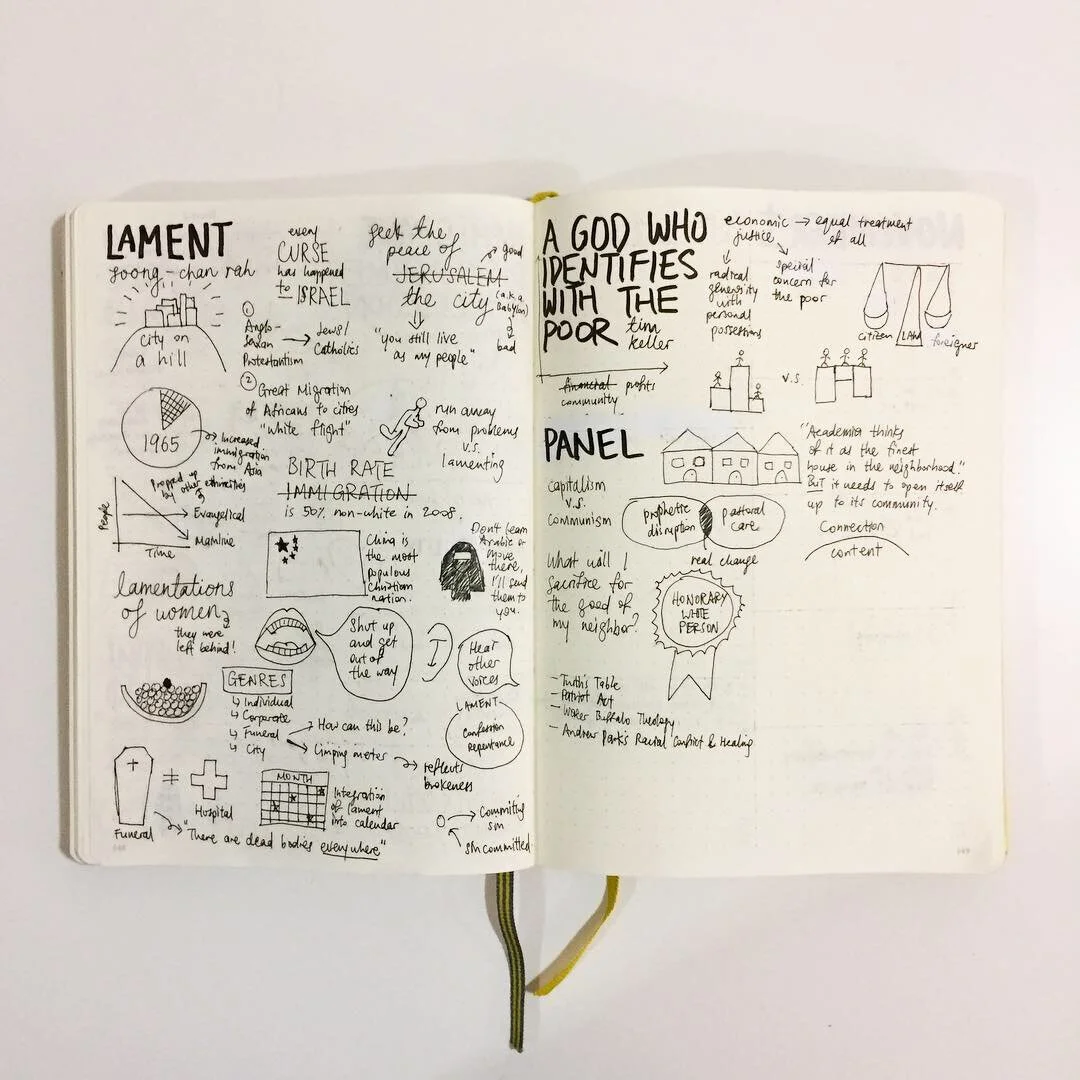 LAMENT
soong-chan rah
city on
a hill
every
CURSE
has happened
to ISRAEL
seek the
peace of
JERUSALEM
the city
(a.k.a.
Babylon)
good
bad
"you still live
as my people"
1
Anglo-
Saxon
Protestantism
Jews/
Catholics
2
Great Migration
of Africans to cities
"white flight"
1965
Increased
immigration
from Asia
run away
from problems
v.s.
lamenting
BIRTH RATE
IMMIGRATION
is 50% non-white in 2008.
Propped
by other ethnicities
People
Time
Evangelical
Mainline
China is
the most
populous
Christian
nation.
Don't learn
Arabic or
move
there,
I'll send
them to
you.
lamentations
of women
they were
left behind!
Shut up
and get
out of
the way
I
Hear
other
voices
GENRES
Individual
Corporate
Funeral
City
How can this be?
Limping meter
reflects
brokenness
LAMENT
Confession
Repentance
Funeral
=
Hospital
"There are dead bodies everywhere"
MONTH
Integration
of lament
into calendar
Commiting
sin
sin committed
A GOD WHO
IDENTIFIES
WITH THE
POOR
tim
keller
economic
justice
equal treatment
of all
radical
generosity
with
personal
possessions
special
concern for
the poor
citizen
LAW
foreigner
financial profits
community
v.s.
PANEL
"Academia thinks
of it as the finest
house in the neighborhood."
But it needs to open itself
up to its community.
capitalism
v.s.
communism
prophetic
disruption
pastoral
care
real change
Connection
content
What will I
sacrifice for
the good of
my neighbor?
HONORARY
WHITE
PERSON
- Truth's Table
- Patriot Act
- Water Buffalo Theology
- Andrew Park's Racial Conflict & Healing